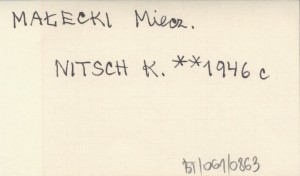 MAŁECKI Miecz.
NITSCH K. **1946 c
BJ/061/0863